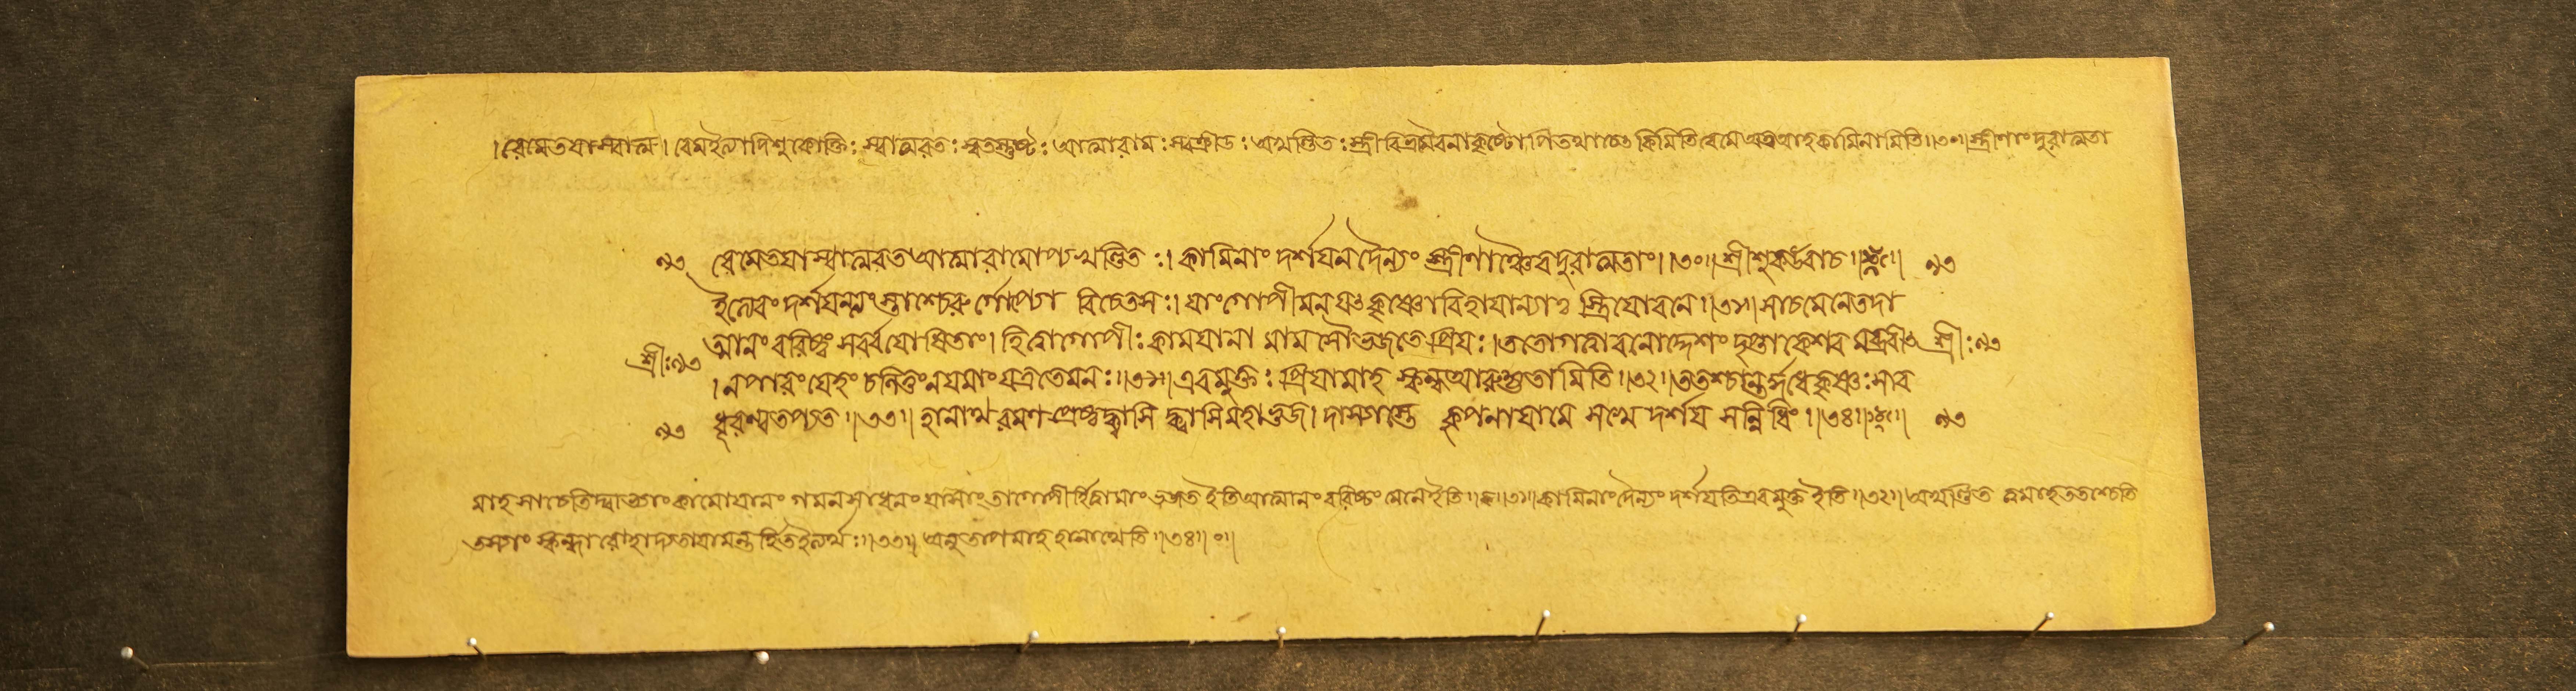 । রেমেতয়াস্বাত্ম। রেমইত্যাদিশুকোক্তিঃ স্বাত্মরতঃ স্বতস্তুষ্টঃ আত্মারামঃ স্বক্রীডঃ অখণ্ডিতঃ স্ত্রীবিভ্রমৈরনাকৃষ্টোপিতথাচেৎ কিমিতি রেমে অত্রআহকামিনামিতি॥৩০॥স্ত্রীণাং দুরাত্মতা
রেমেতয়াস্বাত্মরতআত্মারামোপ্যখণ্ডিতঃ। কামিনাং দর্শয়নদৈন্যং স্ত্রীণাঞ্চৈবদুরাত্মতাং।।৩০॥ শ্রীশুকউবাচ॥
ইত্যেবং দর্শয়ন্ত্যস্তাশ্চেরুর্গোপ্যো বিচেতসঃ। যাংগোপীমনয়ৎকৃষ্ণোবিহায়ান্যাঃ স্ত্রিয়োবনে॥৩১॥ সাচমেনেতদা
শ্রীঃ ৯৩ আত্মানং বরিষ্ঠং সর্ব্বযোষিতাং। হিত্বাগোপীঃ কাময়ানা মামসৌভজতে প্রিয়ঃ। ততোগত্বাবনোদ্দেশং দৃপ্তাকেশবমব্রবীৎ শ্রীঃ ৯৩
। নপারয়েহং চলিতুংনয়মাং যত্রতেমনঃ॥৩২॥ এবমুক্তঃ প্রিয়ামাহ স্কন্ধআরুহ্যতামিতি॥৩২॥ ততশ্চান্তর্দধেকৃষ্ণঃ সাব
ধূরন্বতপ্যত॥৩৩॥ হানাথ রমণ প্রেষ্ঠ ক্বাসি ক্বাসিমহাভুজ। দাস্যাস্তে কৃপণায়ামে সখে দর্শয় সন্নিধিং॥৩৪॥
মাহ সাচেতিদ্বাভ্যাং কামোযানং গমনসাধনং যাসাং তাগোপীর্হিত্বামাং ভজত ইতিআত্মানং বরিষ্ঠং মেনেইতি॥৩১॥ কামিনাংদৈন্যং দর্শয়তিএবমুক্তইতি॥৩২॥ অখণ্ডিত ত্বমাহততশ্চেতি
তস্যাং স্কন্ধারোহোদ্যতায়ামন্তর্হিতইত্যর্থঃ॥৩৩॥ অনুতাপমাহ হানাথেতি॥৩৪॥০॥